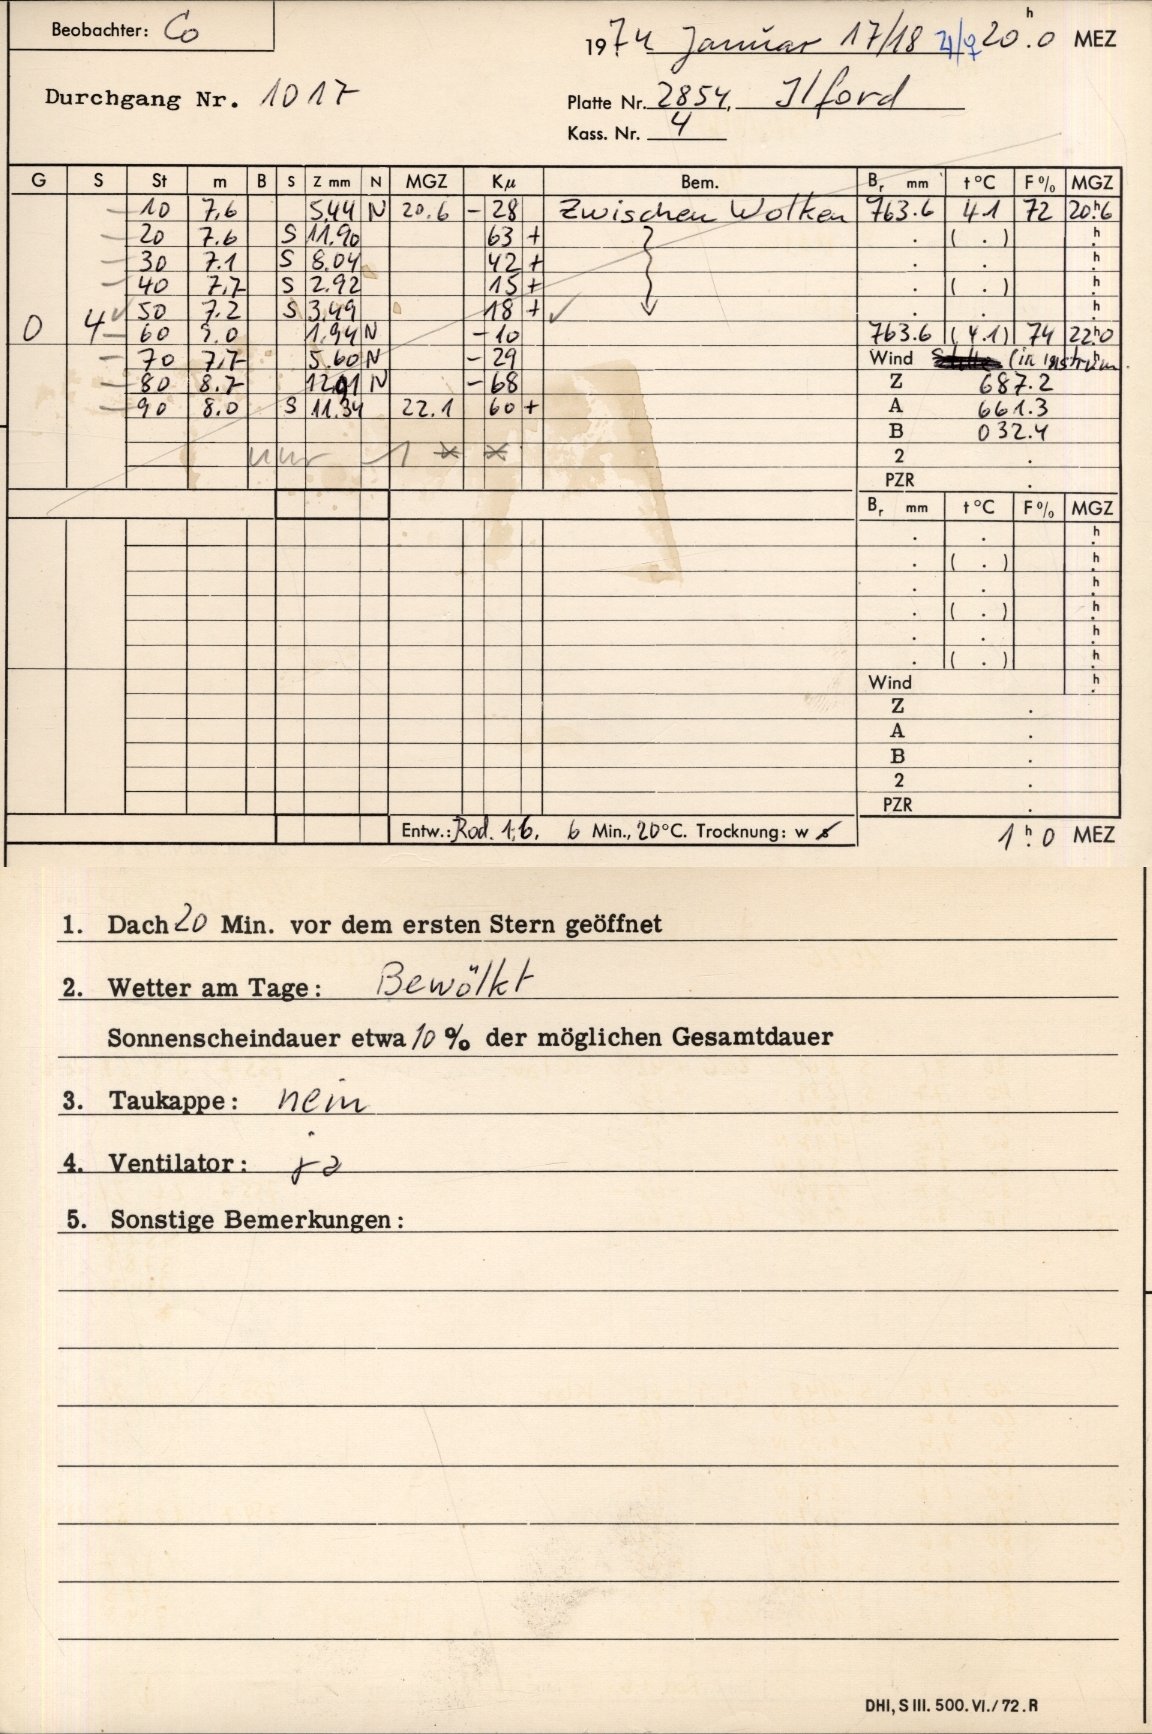 Beobachter: Co
1974 Januar 17/18 ♃/♀ 20h.0 MEZ
Durchgang Nr. 1017
Platte Nr. 2854, Ilford
Kass. Nr. 4
G S St m B S Z mm N MGZ Kμ Bem. Br mm t °C F % MGZ
10 7.6 5.44 N 20.6 - 28 Zwischen Wolken 763.6 4.1 72 20h.6
20 7.6 S 11.90 63 + . ( . ) h
30 7.1 S 8.04 42 + . . h
40 7.7 S 2.92 15 + . ( . ) h
50 7.2 S 3.49 18 + . . h
0 4 60 9.0 1.94 N - 10 763.6 (4.1) 74 22h.0
70 7.7 5.60 N - 29 Wind (in instrum. h
80 8.7 12.91 N - 68 Z 687.2
90 8.0 S 11.34 22.1 60 + A 661.3
B 032.4
nur 1 2 .
PZR .
Br mm t °C F % MGZ
. . h
. ( . ) h
. . h
. ( . ) h
. . h
. ( . ) h
Wind h
Z .
A .
B .
2 .
PZR .
Entw.: Rod. 1:6, 6 Min., 20 °C. Trocknung: w s
1h.0 MEZ
1. Dach 20 Min. vor dem ersten Stern geöffnet
2. Wetter am Tage: Bewölkt
Sonnenscheindauer etwa 10 % der möglichen Gesamtdauer
3. Taukappe: nein
4. Ventilator: ja
5. Sonstige Bemerkungen:
DHI, S III. 500. VI./72. R